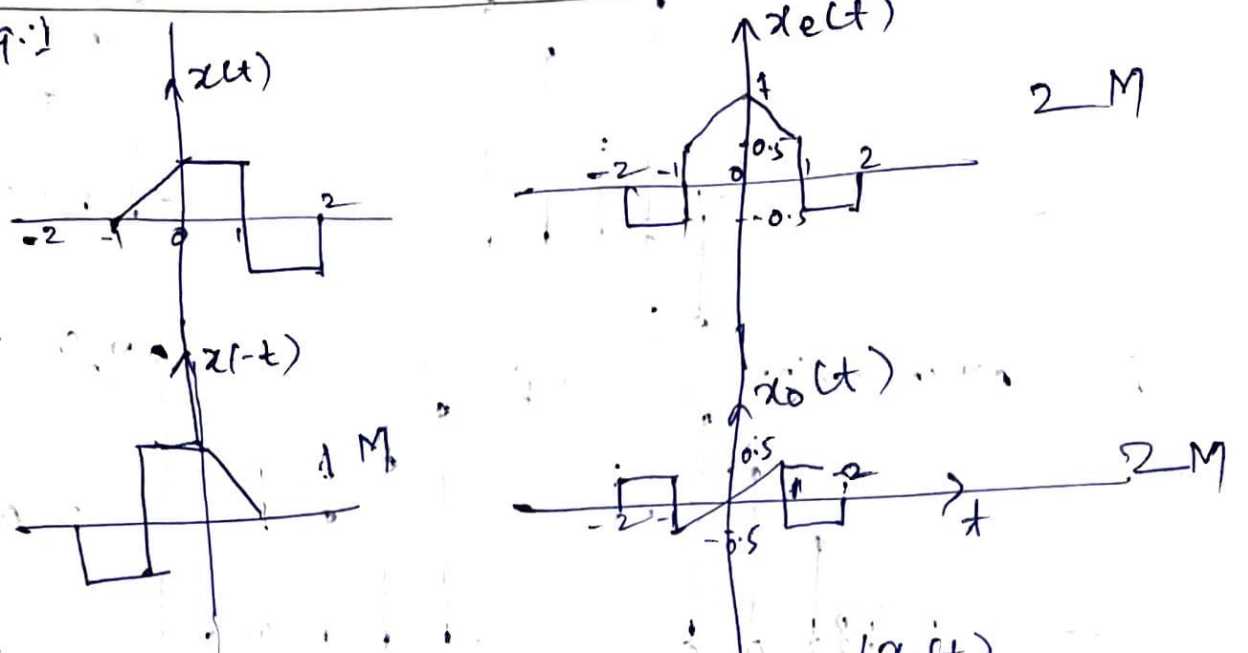 x(t)
-2 -1 0 1 2
x(-t)
1 M
xe(t)
1
2 M
0.5
-2 -1 0 1 2
-0.5
xo(t)
0.5
2 M
-2 -1 1 2
-0.5
t